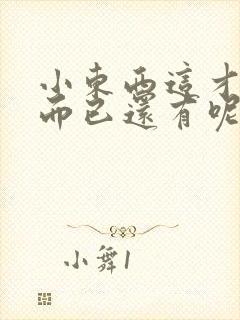 小東西這才
而已還有呢
小舞1